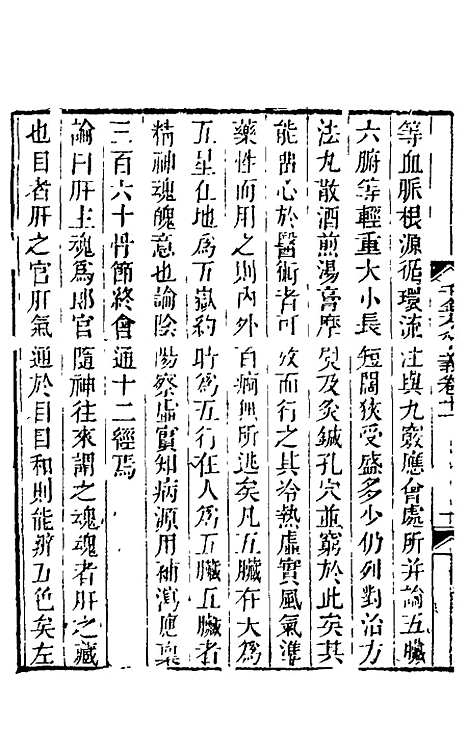 等血脈根源循環流注與九竅應會處所并論五臟
六腑等輕重大小長短闊狹受盛多少仍列對治方
法丸散酒煎湯膏摩熨及灸鍼孔穴並窮於此矣其
能留心於醫術者可攷而行之其冷熱虛實風氣準
藥性而用之則內外百痾無所逃矣凡五臟在天為
五星在地為五嶽約時為五行在人為五臟五臟者
精神魂魄意也論陰陽察虛實知病源用補瀉應稟
三百六十骨節終會通十二經焉
論曰肝主魂為郎官隨神往來謂之魂魂者肝之藏
也目者肝之官肝氣通於目目和則能辨五色矣左
千金方衍義卷十一